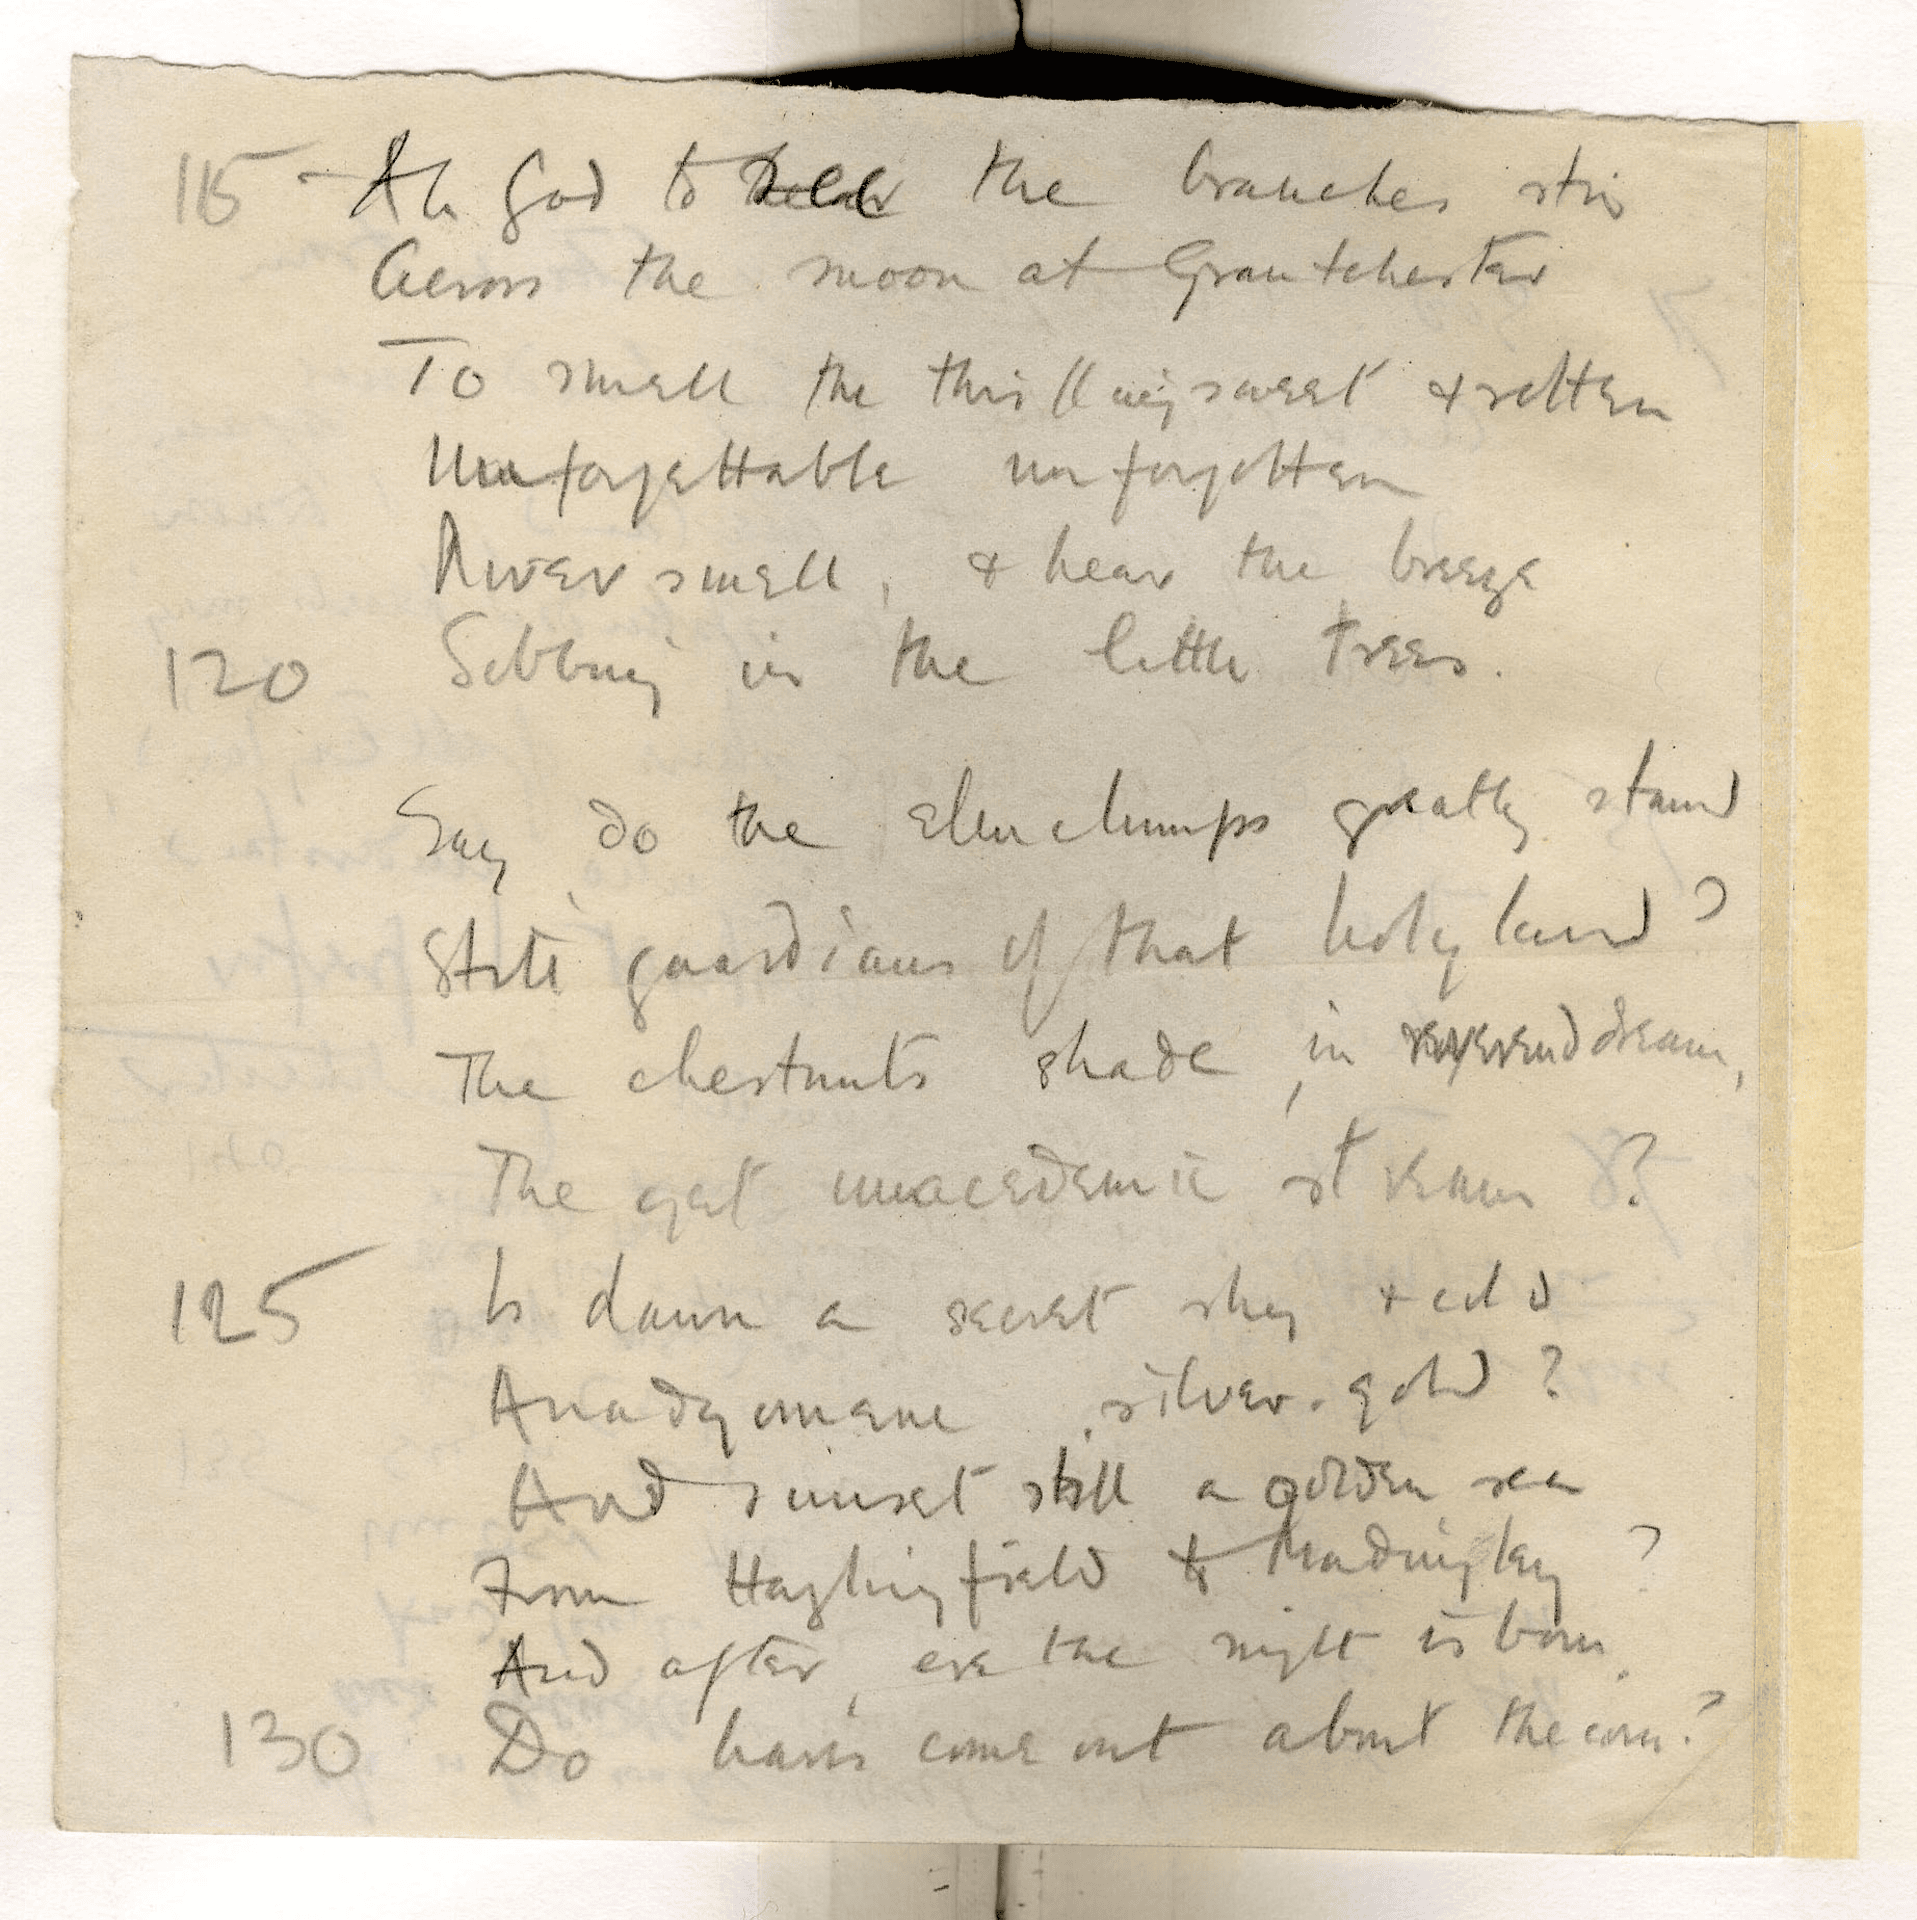 115 - Ah God to the branches stir
Across the moon at Grantchester
To smell the thrilling sweet & rotten
Unforgettable unforgotten
River smell, & hear the breeze
120 Sobbing in the little trees.
Say, do the elm clumps greatly stand
Still guardians of that holy land?
The chestnuts shade, in reverend dream,
The yet unacademic stream?
125 Is dawn a secret shy & cold
Anadyomene, silver-gold?
And sunset still a golden sea
From Hazlingfield to Madingley?
And after, ere the night is born,
130 Do hares come out about the corn?